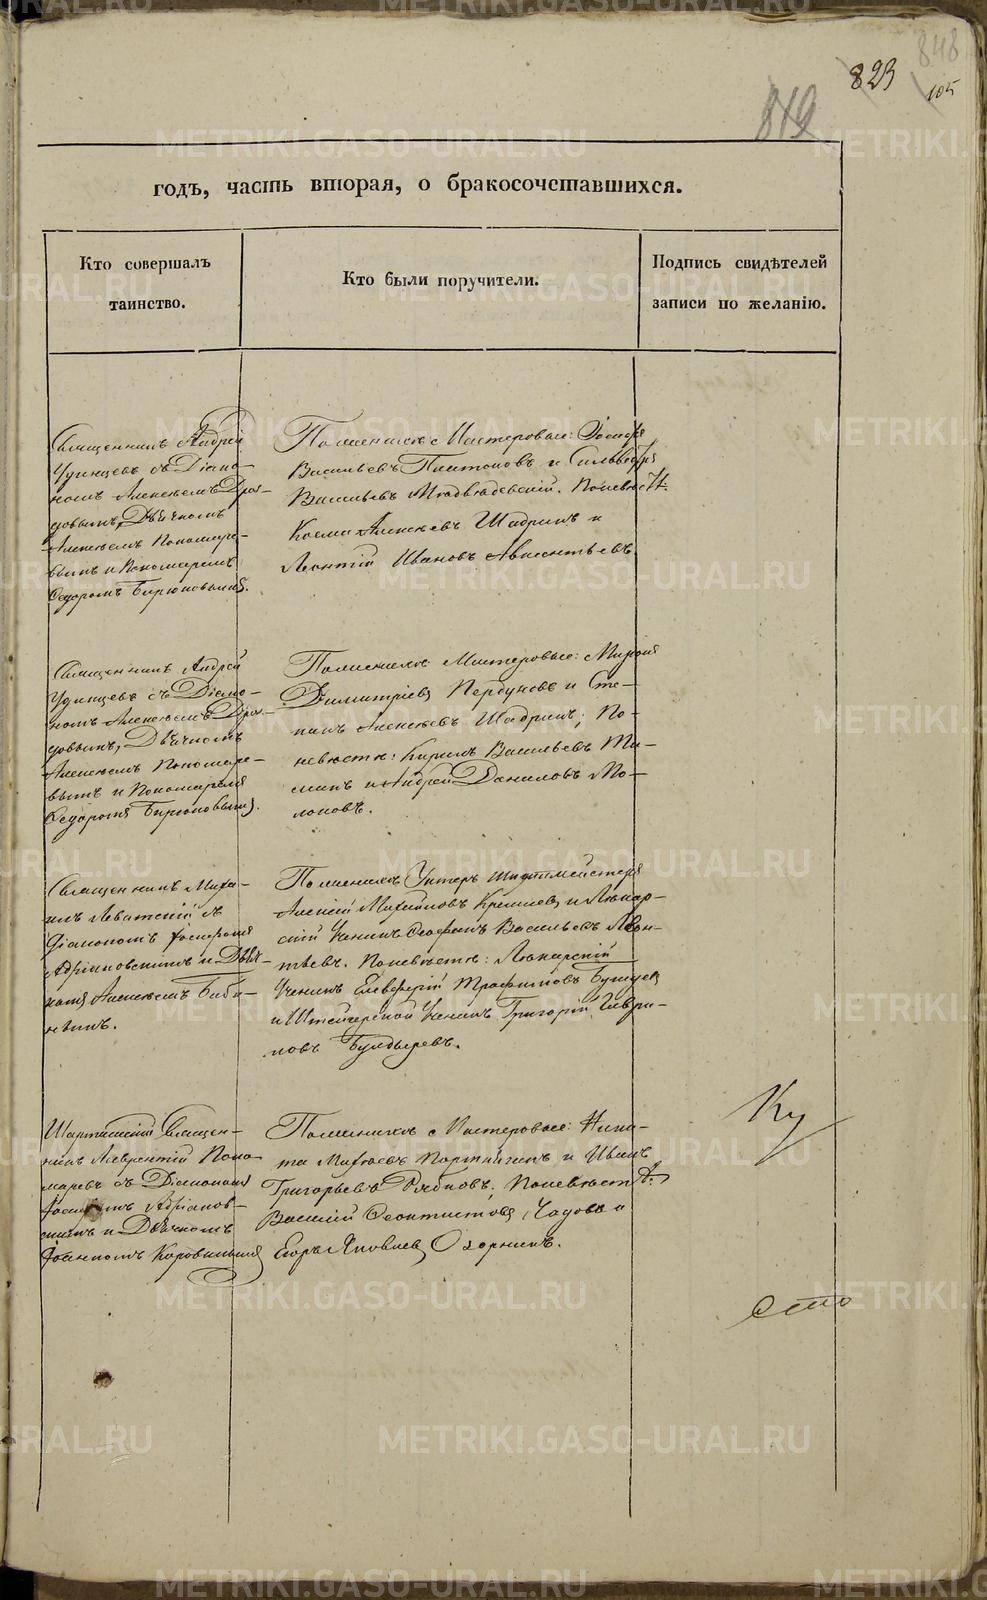 848
823
105
819
годъ, часть вторая, о бракосочетавшихся.
Кто совершалъ
таинство.
Кто были поручители.
Подпись свидѣтелей
записи по желанію.
Священникъ Андрей
Удинцевъ съ Діако-
номъ Алексѣемъ Дроз-
довымъ, Дьячкомъ
Алексѣемъ Пономаре-
вымъ и Пономаремъ
Ѳедоромъ Бирюковымъ.
По женихѣ Мастеровые: Іосифъ
Васильевъ Платоновъ и Сильвестръ
Васильевъ Медвѣдевскій. По невѣстѣ
Косма Алексѣевъ Шадринъ и
Леонтій Ивановъ Авксентьевъ.
Священникъ Андрей
Удинцевъ съ Діако-
номъ Алексѣемъ Дроз-
довымъ, Дьячкомъ
Алексѣемъ Пономаре-
вымъ и Пономаремъ
Ѳедоромъ Бирюковымъ.
По женихѣ Мастеровые: Миронъ
Димитріевъ и Сте-
панъ Алексѣевъ Шадринъ; По
невѣстѣ: Кирилъ Васильевъ
и Андрей Даниловъ Мо-
локовъ.
Священникъ Миха-
илъ Леватскій съ
Діакономъ Іосифомъ
Адріановскимъ и Дьяч-
комъ Алексѣемъ Баби-
нымъ.
По женихѣ Унтеръ Шихтмейстеръ
Алексѣй Михайловъ Кремлевъ и Лѣкар-
скій Ученикъ Ѳеофанъ Васильевъ Леон-
тьевъ. По невѣстѣ: Лѣкарскій
Ученикъ Елевѳерій Трофимовъ
и Штейгерской Ученикъ Григорій Гаври-
ловъ Булдыревъ.
Шарташскій Священ-
никъ Лаврентій Поно-
маревъ съ Діакономъ
Іосифомъ Адріанов-
скимъ и Дьячкомъ
Іоанномъ Коровинымъ
По женихѣ Мастеровые: Ники-
та Матвѣевъ и Иванъ
Григорьевъ Рябковъ. По невѣстѣ
Василій Ѳеоктистовъ Чадовъ и
Егоръ Яковлевъ Озорнинъ.
METRIKI.GASO-URAL.RU